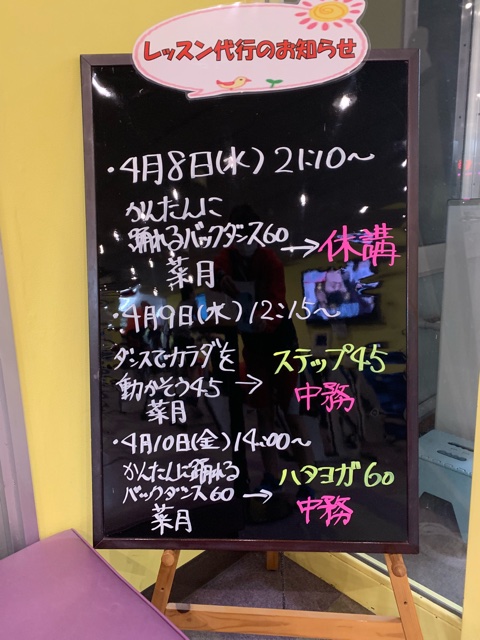 レッスン代行のお知らせ
・4月8日(水) 21:10〜
かんたんに
踊れるバックダンス60→休講
菜月
・4月9日(木) 12:15〜
ダンスでカラダを
動かそう45 → ステップ45
菜月 中務
・4月10日(金) 14:00〜
かんたんに踊れる
バックダンス60 → ハタヨガ60
菜月 中務